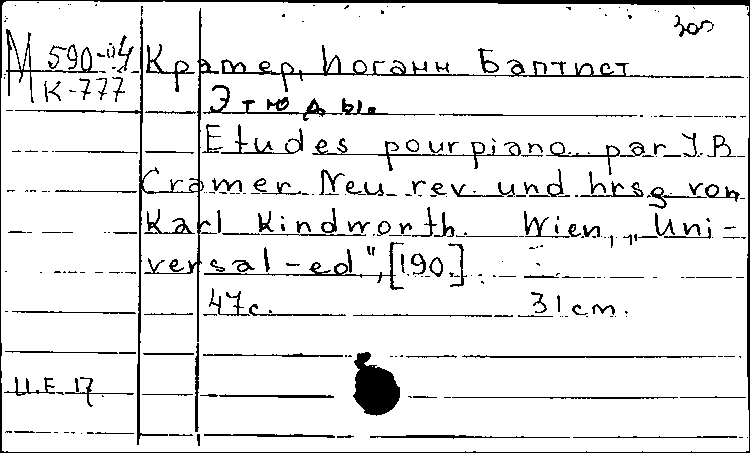 300
М 590-04 Крамер, Иоганн Баптист
К-777 Этюды.
Etudes pour piano par J.B
Cramer. Neu rev. und hrsg von
Karl Kindworth. Wien, „Uni-
versal-ed", [190.].
47с. 31 cm.
U.E 17